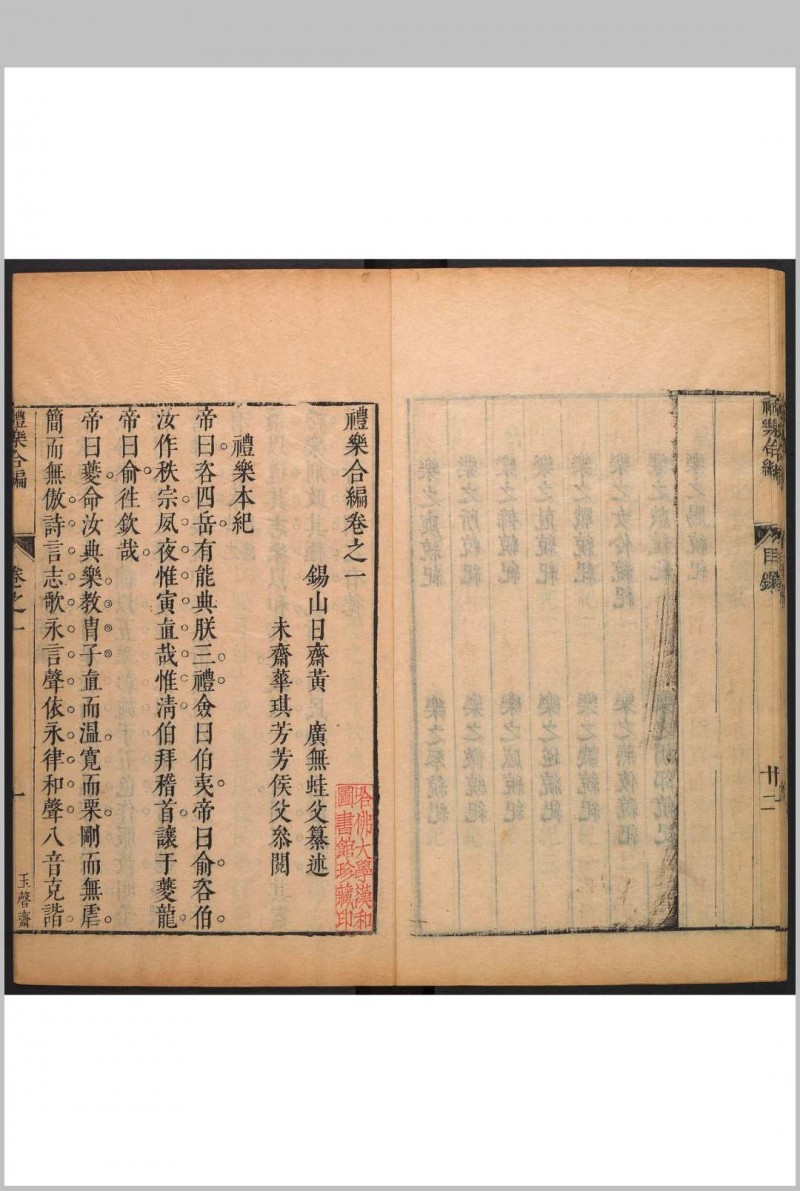 禮樂合編
目錄
廿二
禮樂合編卷之一
錫山日齋黃　廣無蛙父纂述
未齋華琪芳芳侯父叅閱
哈佛大學漢和
圖書館珍藏印
禮樂本紀
帝曰咨四岳有能典朕三禮僉曰伯夷帝曰俞咨伯
汝作秩宗夙夜惟寅直哉惟清伯拜稽首讓于夔龍
帝曰俞徃欽哉
帝曰夔命汝典樂教胄子直而溫寬而栗剛而無虐
簡而無傲詩言志歌永言聲依永律和聲八音克諧
禮樂合編
卷之一
一
玉磬齋